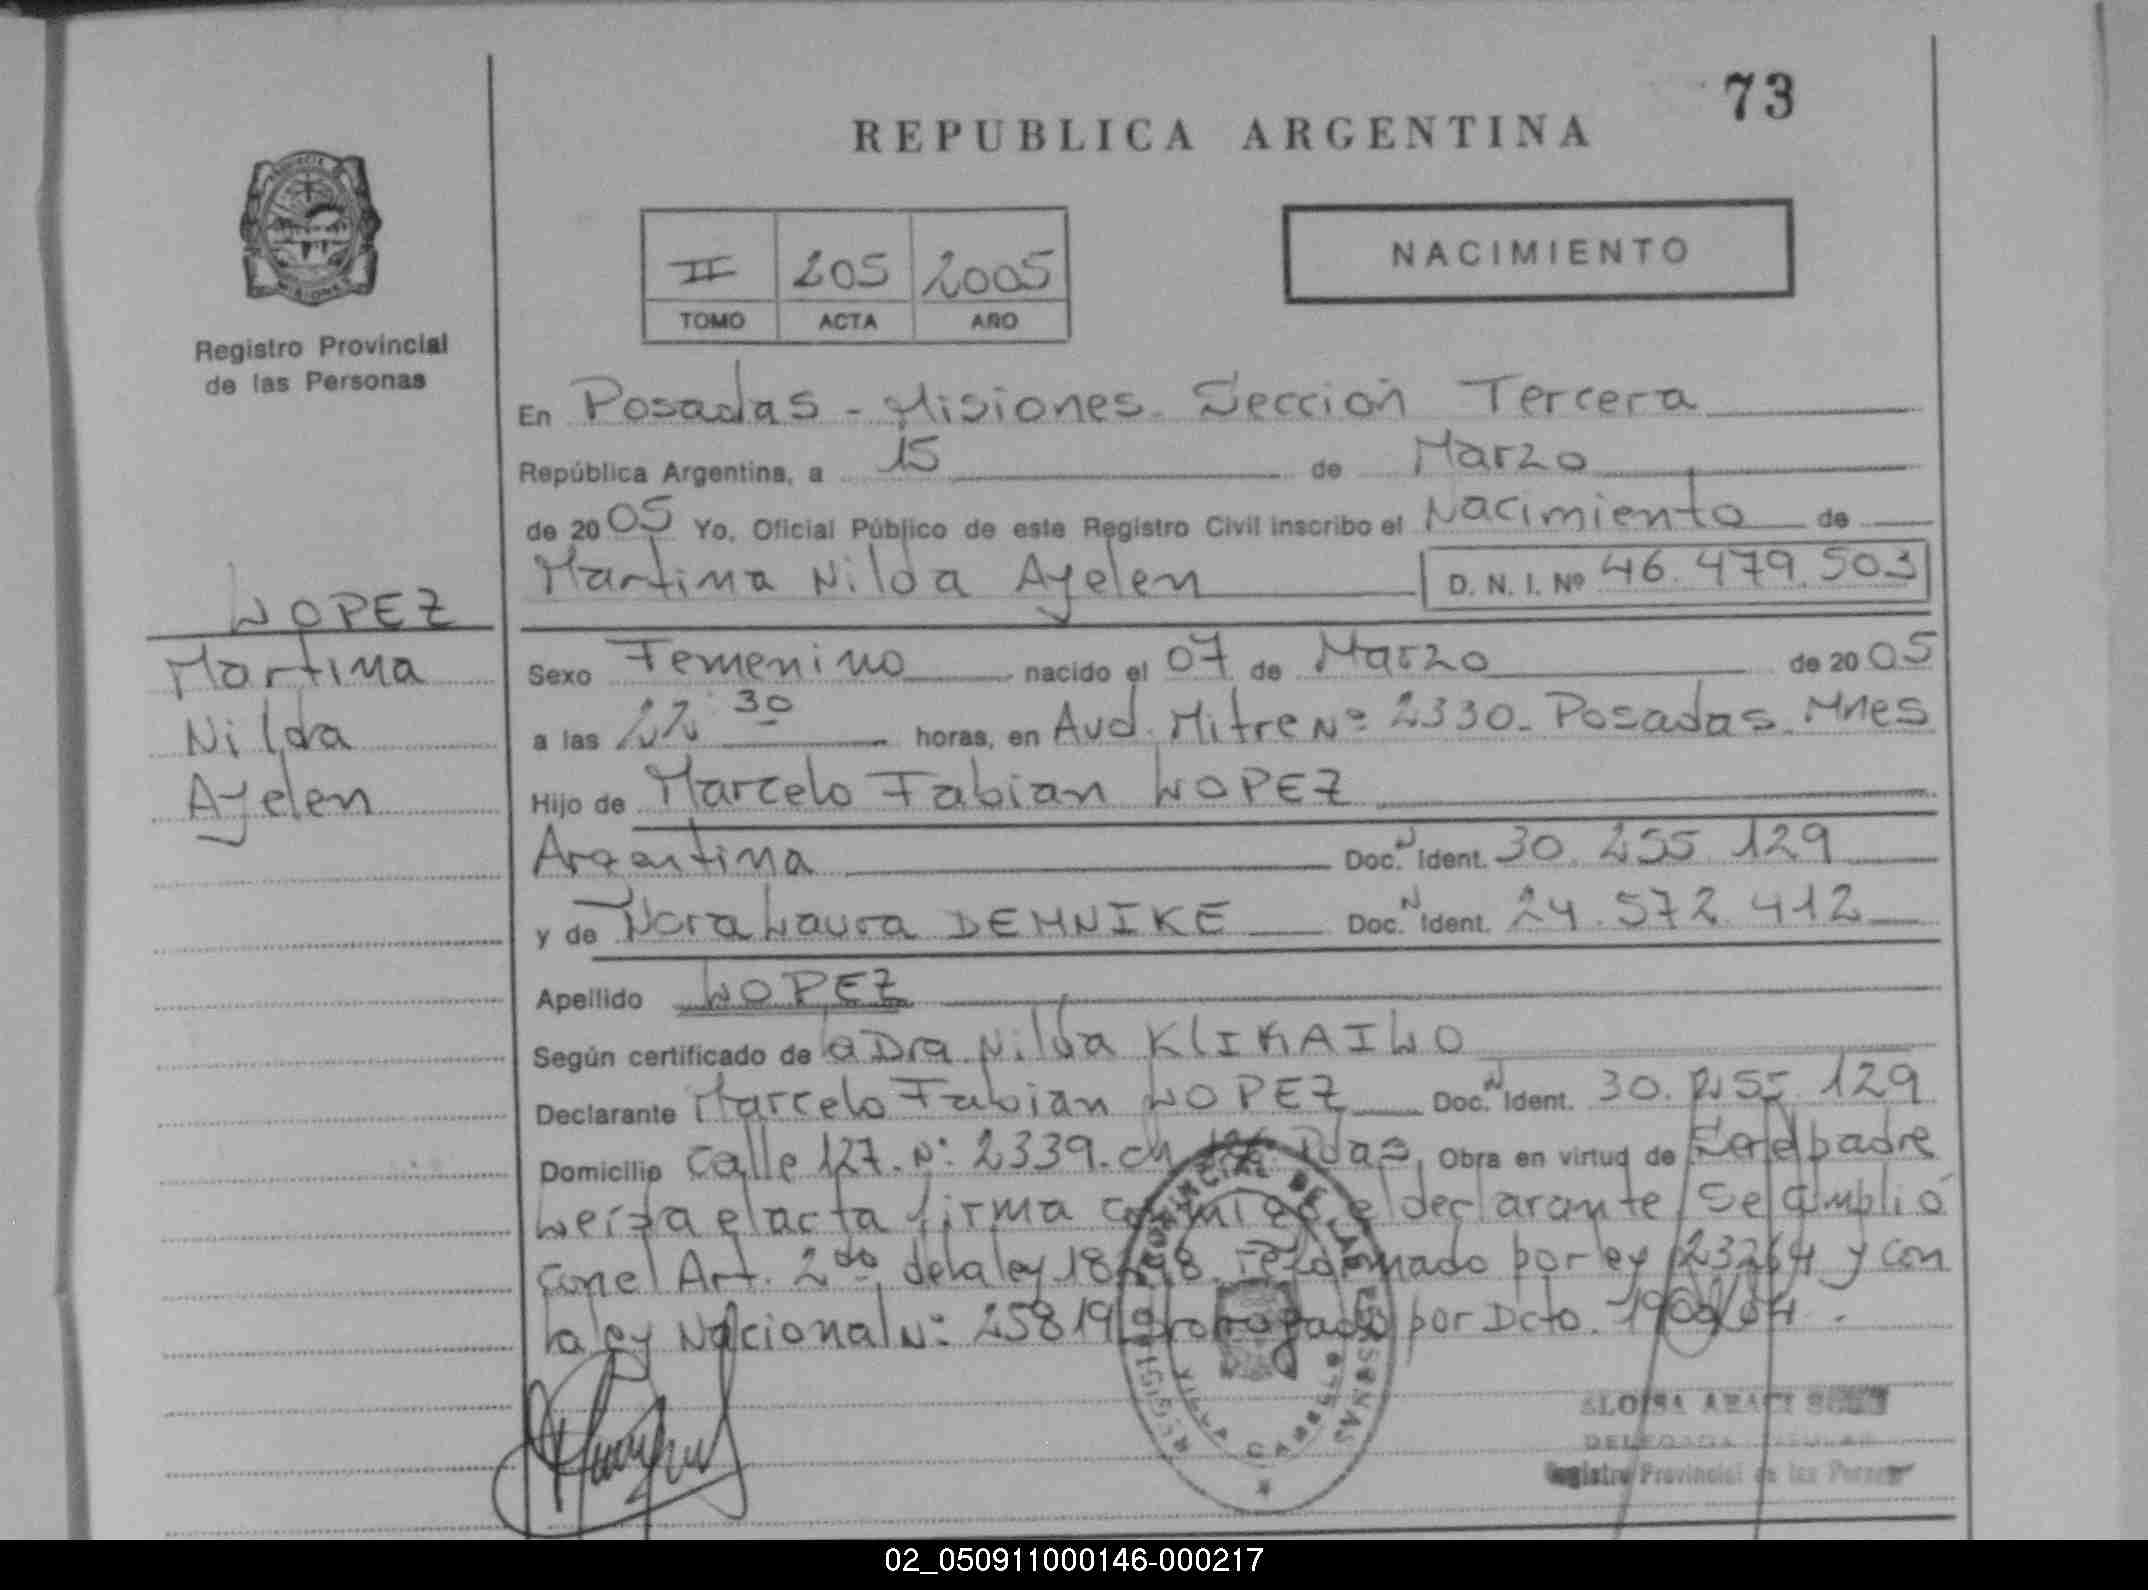 73
REPUBLICA ARGENTINA
NACIMIENTO
II 205 2005
TOMO ACTA AÑO
Registro Provincial
de las Personas
En Posadas - Misiones. Sección Tercera
República Argentina, a 15 de Marzo
de 2005 Yo, Oficial Público de este Registro Civil inscribo el Nacimiento de
Martina Nilda Ayelen D. N. I. Nº 46.479.503
LOPEZ
Martina
Nilda
Ayelen
Sexo Femenino nacido el 07 de Marzo de 2005
a las 22 30 horas, en Avd. Mitre Nº 2330. Posadas. Mnes
Hijo de Marcelo Fabian LOPEZ
Argentina Doc. N Ident. 30.255.129
y de Nora Laura DEMNIKE Doc. N Ident. 24.572.412
Apellido LOPEZ
Según certificado de la Dra. Nilda KLIKAILO
Declarante Marcelo Fabian LOPEZ Doc. N Ident. 30.255.129
Domicilio Calle 127. Nº: 2339. ch Pdas. Obra en virtud de Ser el padre
Leída el acta firma conmigo el declarante. Se amplió
con el Art. 2do de la ley reformado por ley 23264 y con
la ley Nacional Nº: 25819 prorrogado por Dcto.
PROVINCIAL DE LAS PERSONAS
Registro Provincial de las Personas
02_050911000146-000217